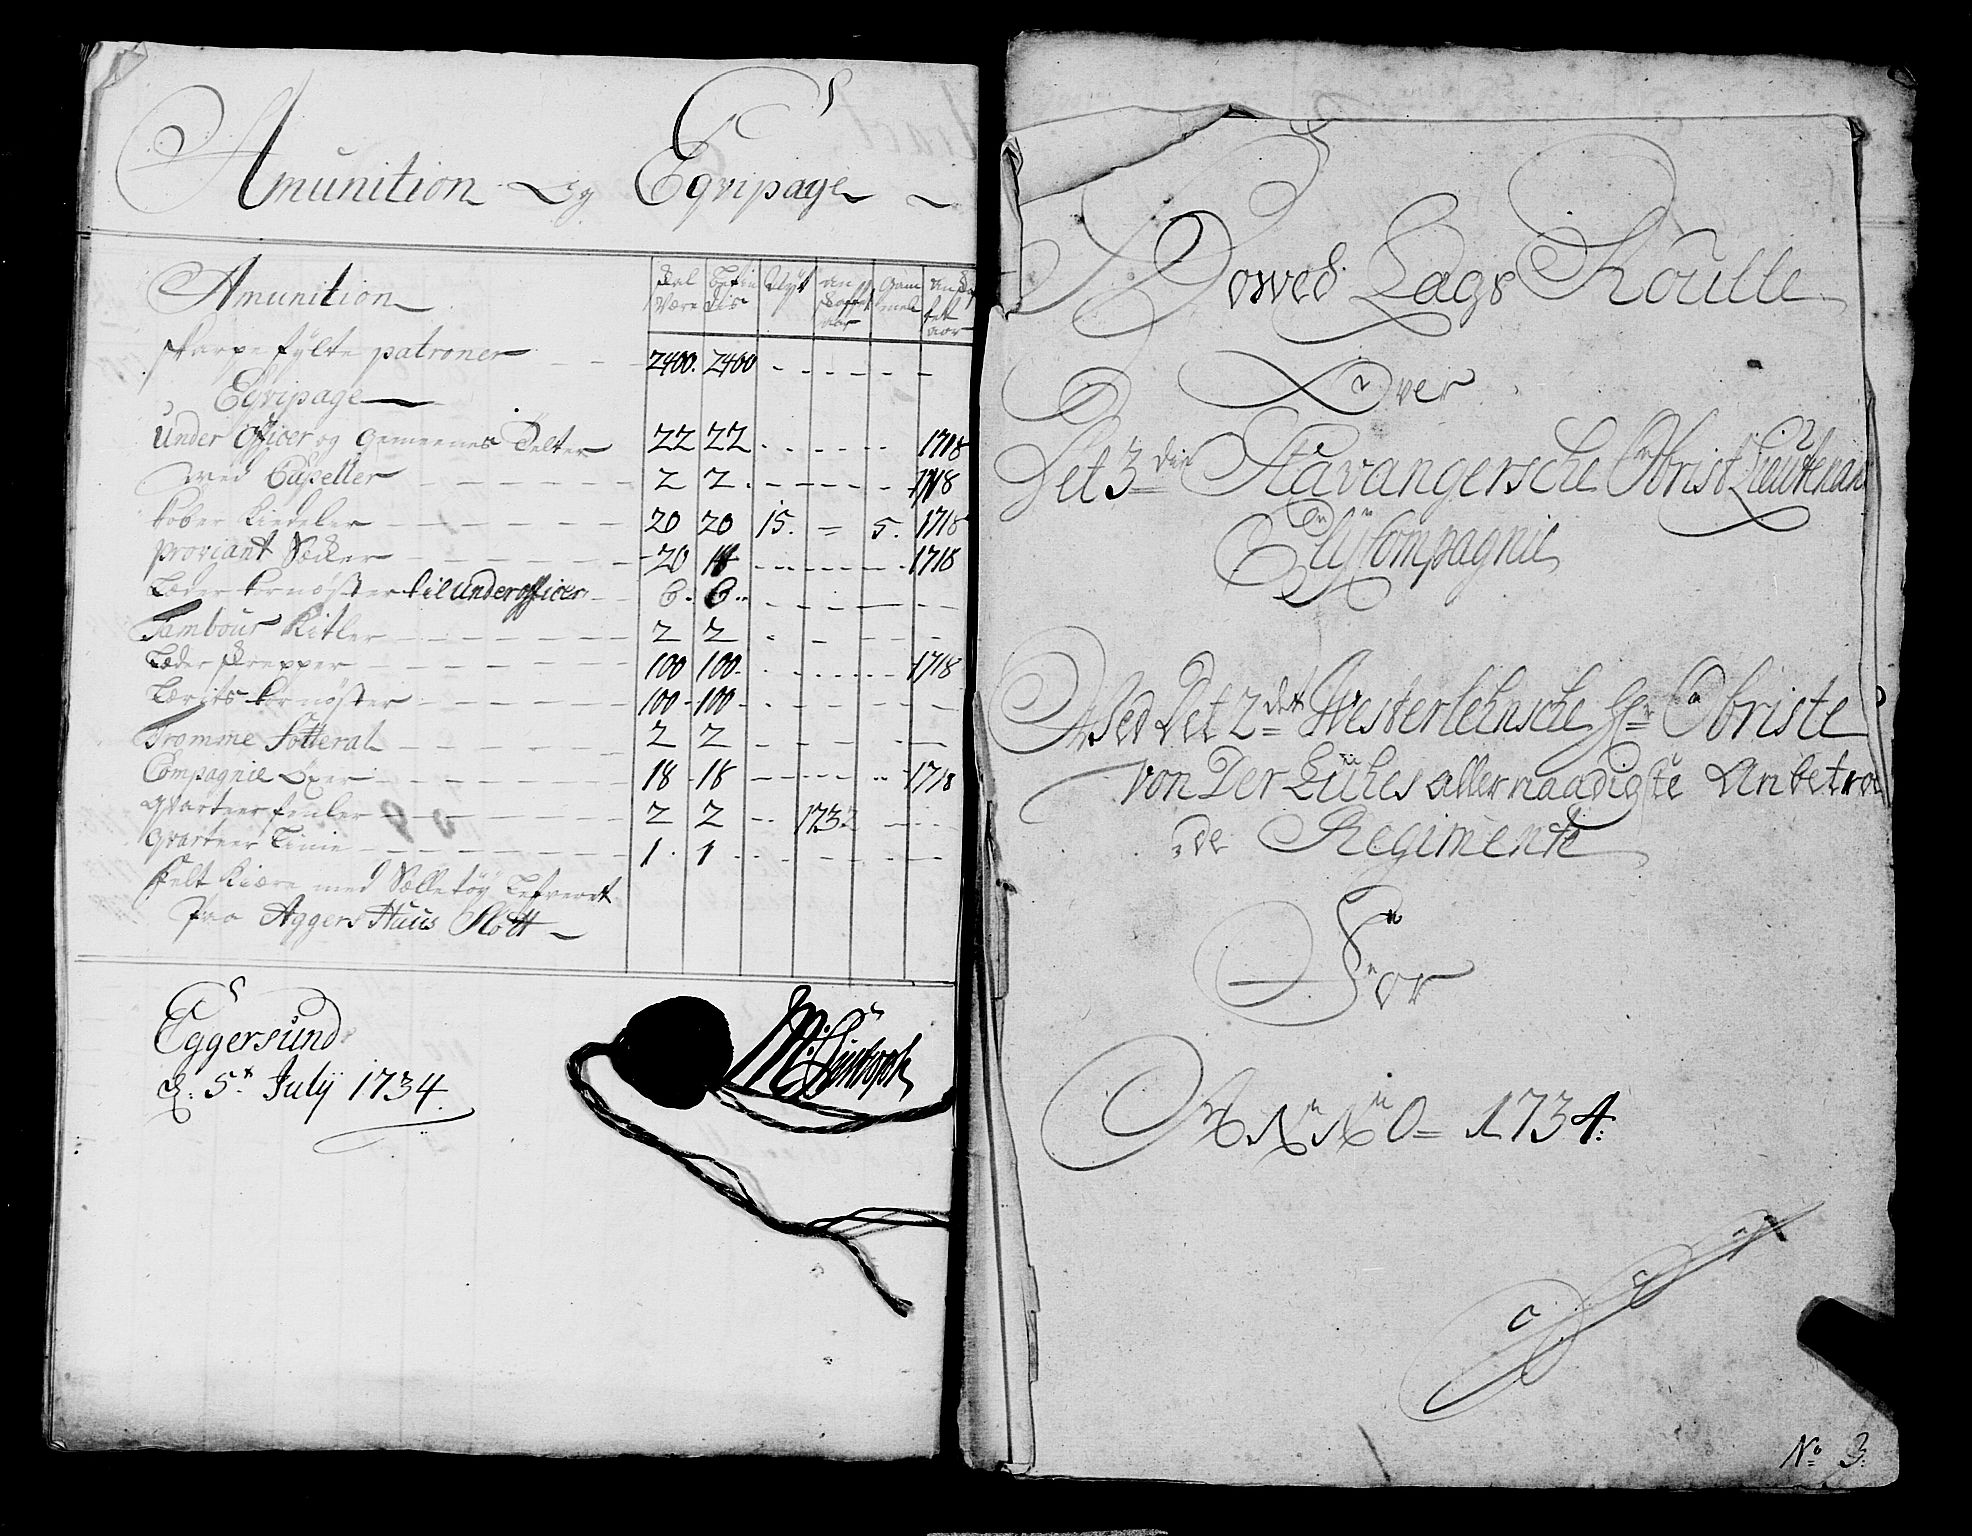 Amunition og Eqvipage
Amunition Skal Være Befindis Nyt an skaffet aar Gammel an skaffet aar
skarpe fylte patroner 2400. 2400
Eqvipage
Under Officer og Gemeenes Telter 22 22 1718
med Capeller 2 2 1718
kober Kiedeler 20 20 15. 5. 1718
proviant Secker 20 1718
Læder tornøster til Underofficer 6. 6.
Tambour Kitler 2 2
Læder skrepper 100 100. 1718
Lærits tornøster 100 100
Tromme Fotteral 2 2
Compagnie Øxer 18 18 1718
qvarteer fenler 2 2 1732
qvarteer Linie 1. 1
felt kiære med Sælletøy Lefveort
paa Aggers Huus Slott
Eggersund
d. 5t July 1734.
Howed Lags Roulle
Over
Det 3die Stavangersche Obrist Lieutenan
Compagnie
Wed Det 2det Westerlehnsche Hr Obriste
von Der Lühes allernaadigste Anbetro
de Regimente
For
ANNO 1734.
No 3.